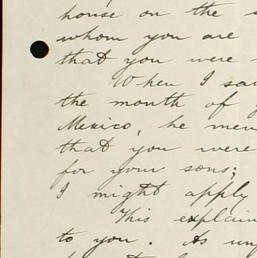 house on the
whom you are
that you were
When I saw
the month of
Mexico, he men
that you were
for your sons;
I might apply
This explain
to you. As un